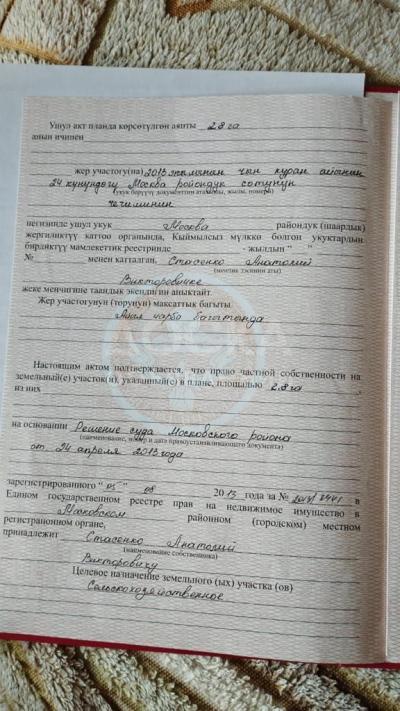 Ушул акт планда көрсөтүлгөн аянты 2.8 га
анын ичинен
жер участогу(на) 2013 жылынын чын куран айынын
24 күнүндөгү Москва райондук сотунун
(укук берүүчү документтин аталышы, жылы, номери)
чечиминин
негизинде ушул укук Москва райондук (шаардык)
жергиликтүү каттоо органында, Кыймылсыз мүлккө болгон укуктардын
бирдиктүү мамлекеттик реестринде - жылдын " "
№ менен катталган, Стасенко Анатолий
(менчик ээсинин аты)
Викторовичке
жеке менчигине таандык экендигин аныктайт.
Жер участогунун (торунун) максаттык багыты.
Айыл чарба багытында
Настоящим актом подтверждается, что право частной собственности на
земельный(е) участок(и), указанный(е) в плане, площадью 2.8 га
из них
на основании Решение суда Московского района
(наименование, номер и дата правоустанавливающего документа)
от 24 апреля 2013 года
зарегистрированного " 05 " 08 2013 года за № в
Едином государственном реестре прав на недвижимое имущество в
Московском районном (городском) местном
регистрационном органе,
принадлежит Стасенко Анатолий
(наименование собственника)
Викторовичу
Целевое назначение земельного (ых) участка (ов)
Сельскохозяйственное